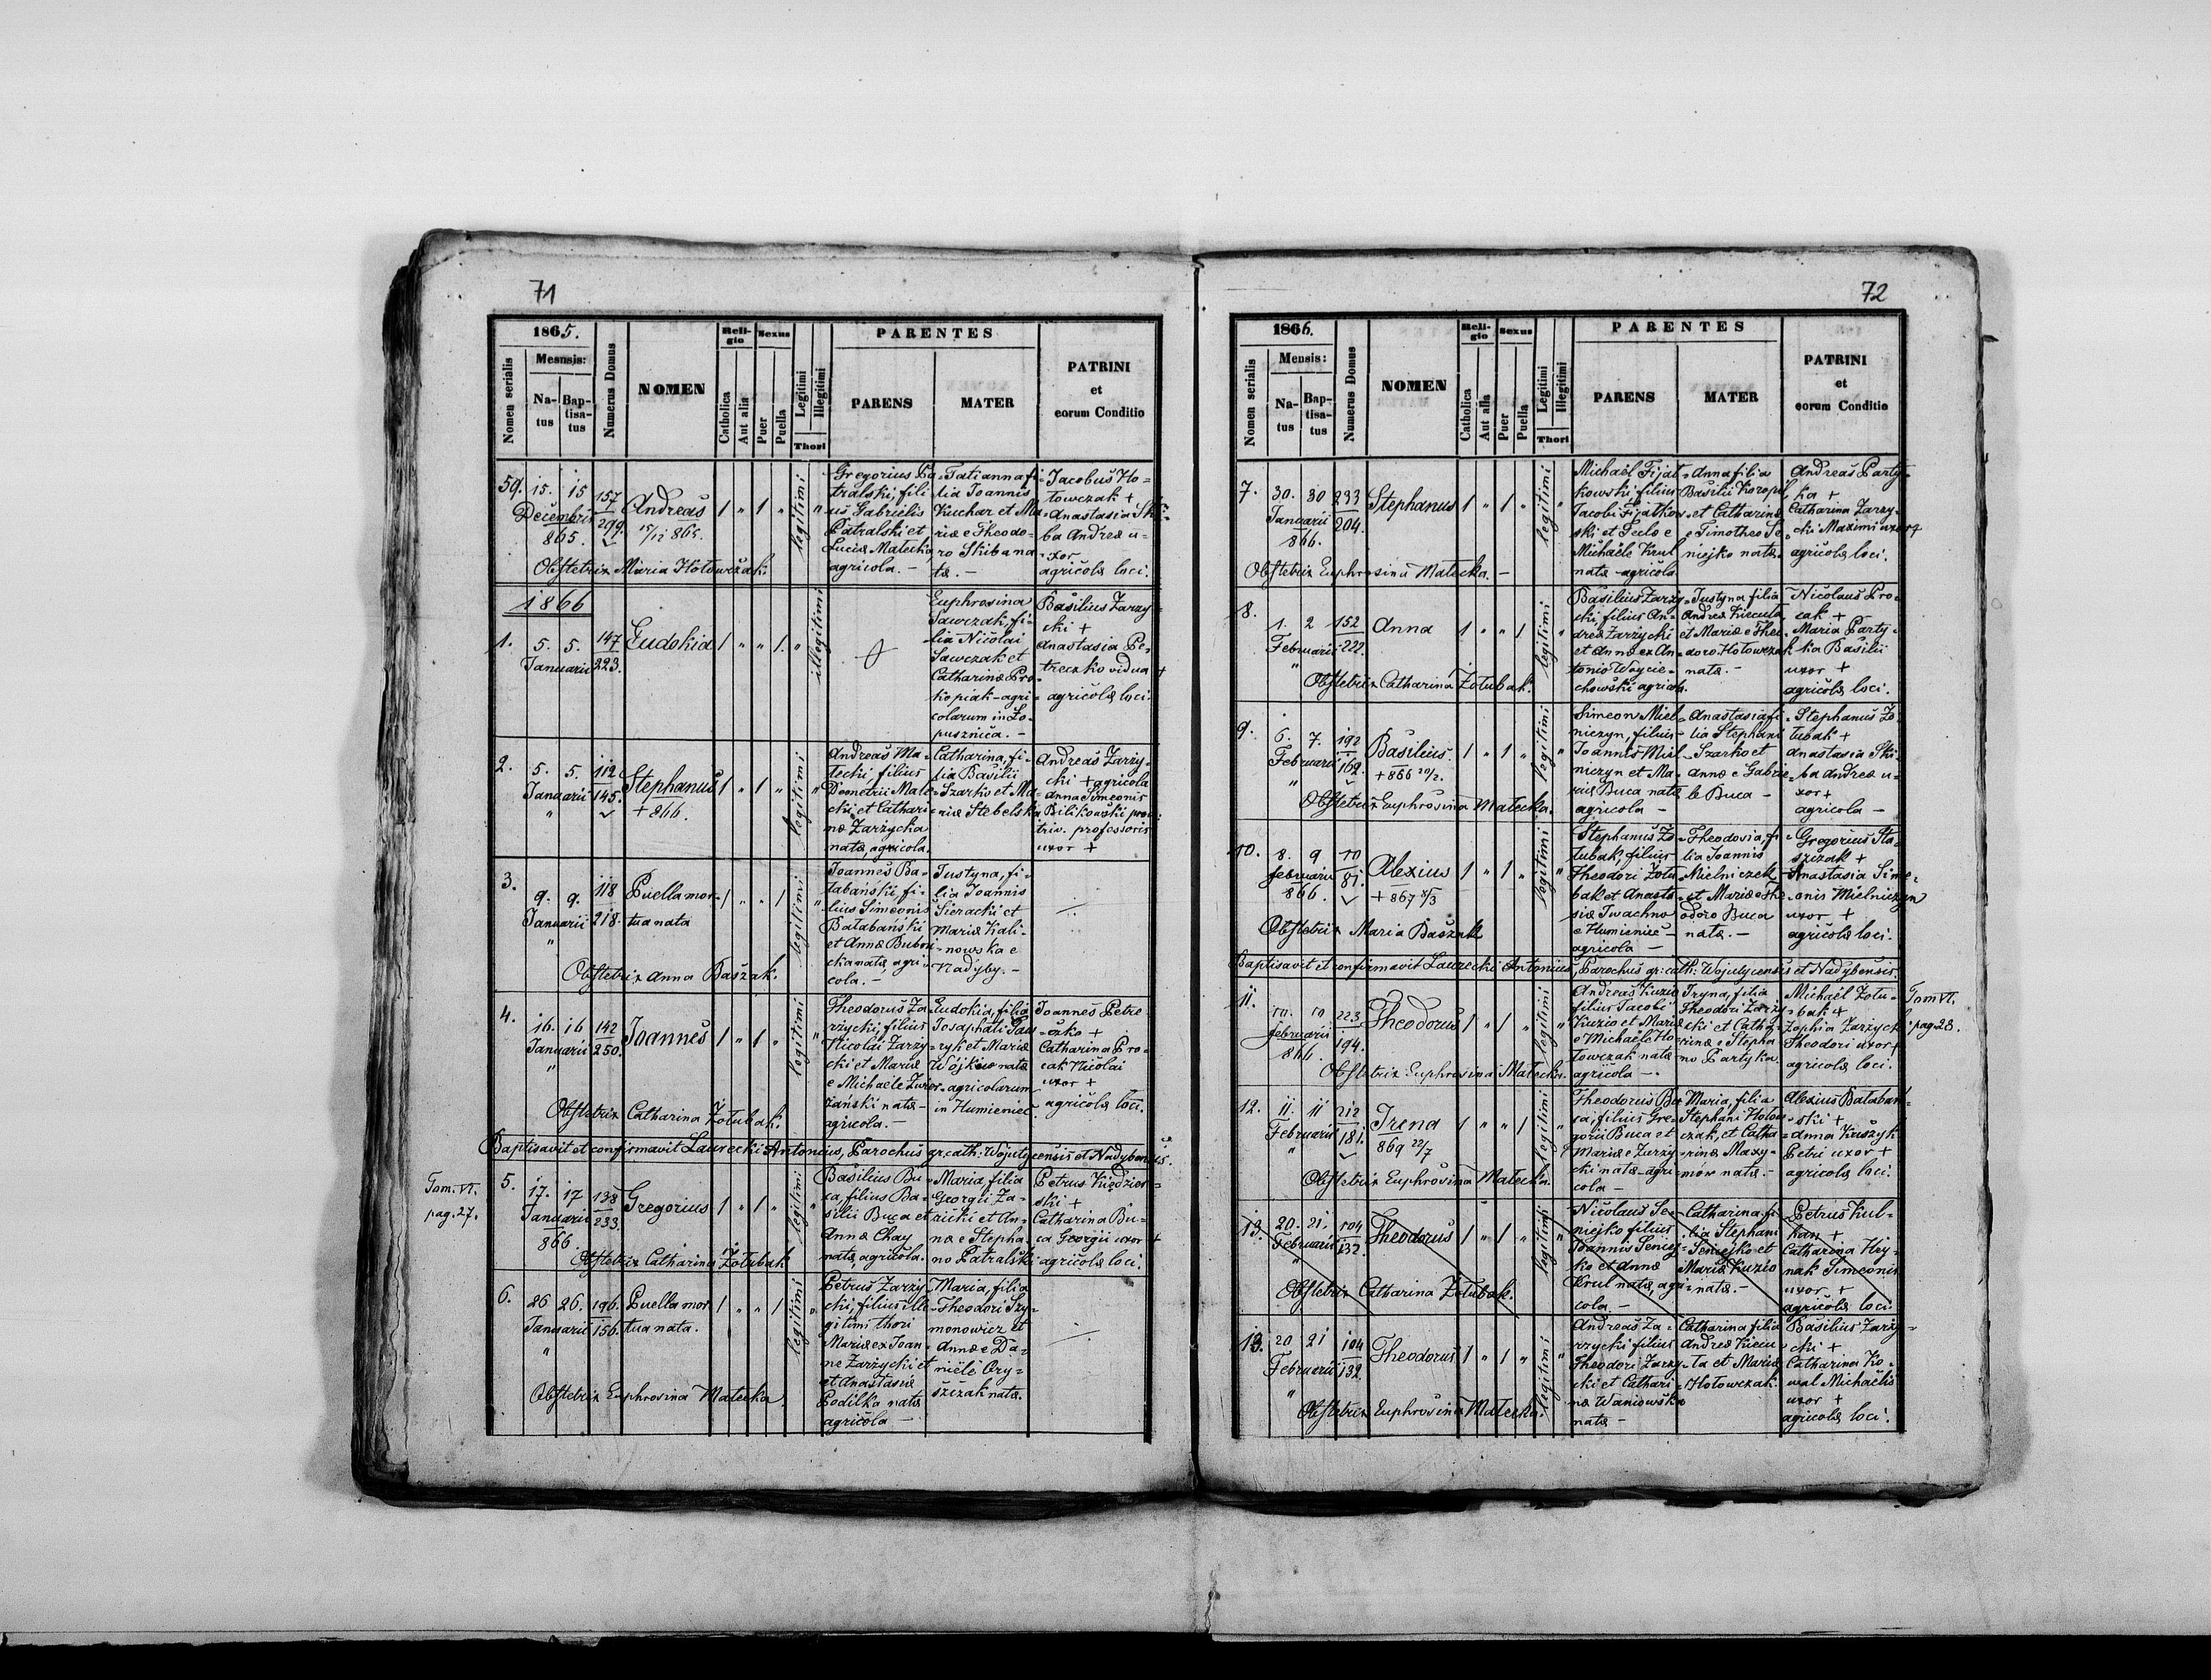 71
1865.
Nomen serialis
Mesnsis:
Na-
tus
Bap-
tisa-
tus
Numerus Domus
NOMEN
Reli-
gio
Catholica
Aut alia
Sexus
Puer
Puella
Legitimi
Illegitimi
Thori
PARENTES
PARENS
MATER
PATRINI
et
eorum Conditio
59. 15. 15
Decembris
865.
157
299.
Andreas
15/12 865.
1 " 1 " legitimi "
Gregorius Pa
tralski, fili
us Gabrielis
Patralski et
Luciæ Matecka,
agricola. —
Tatianna fi
lia Joannis
Kuchar et Ma
riæ e Theodo-
ro Skiba na
tæ. —
Jacobus Ho=
towczak +
Anastasia Ski
ba Andreæ u=
xor
agricolæ loci.
Obstetrix Maria Hołowczak.
1866
1. 5. 5.
Januarii
147
223.
Eudokia
1 " " 1. " illegitimi
Euphrosina
Sawczak, fi-
lia Nicolai
Sawczak et
Catharinæ Pro
kopiak - agri
colarum in Ło-
pusznica. —
Basilius Zarzy
cki +
Anastasia Pe,
treczko vidua +
agricolæ loci.
2. 5. 5.
Januarii
"
112
145.
Stephanus
+ 866.
1 " 1 " legitimi "
Andreas Ma-
tecki, filius
Demetrii Mate
cki et Cathari
næ Zarzycka
natæ, agricola.
Catharina, fi-
lia Basilii
Szarko et Ma
riæ Stebelska
Andreas Zarzy
cki + agricola
Anna Simeonis
Bilikowski
triv. professoris
uxor +
3. 9. 9.
Januarii
"
118
218.
Puella mor-
tua nata
1 " " 1 legitimi "
Joannes Ba-
łabański, fi-
lius Simeonis
Bałabański
et Annæ Bubni
cka natæ, agri-
cola. —
Justyna, fi-
lia Joannis
Sieracki et
Mariæ Kali-
nowska e
Nadyby. —
Obstetrix Anna Baszak.
4. 16. 16
Januarii
"
142
250.
Joannes
1 " 1 " legitimi "
Theodorus Za
rzycki, filius
Nicolai Zarzy-
cki et Mariæ
e Michaele Zwier-
zański natæ —
agricola. —
Eudokia, filia
Josaphati Gaw
ryk et Mariæ
Wójkiw natæ
agricolarum
in Humieniec
Joannes Petre
czko +
Catharina Pro-
cak Nicolai
uxor +
agricolæ loci.
Obstetrix Catharina Żołubak.
Baptisavit et confirmavit Laurecki Antonius, Parochus gr. cath: Wojutycensis et Nadybensis.
Tom. VI.
pag. 27.
5. 17. 17
Januarii
866
138
233.
Gregorius
1 " 1 " legitimi "
Basilius Bu
ca, filius Ba-
silii Buca et
Annæ Chay
natæ, agricola.
Maria filia
Georgii Za-
ricki et An-
næ e Stepha-
no Patralski
Petrus Kiędzior-
ski +
Catharina Bu-
ca Georgii uxor +
agricolæ loci.
Obstetrix Catharina Żołubak
6. 26 26.
Januarii
"
196.
156.
Puella mor
tua nata.
1 " " 1 legitimi "
Petrus Zarzy
cki, filius ille
gitimi thori
Mariæ ex Joan
ne Zarzycki et
et Anastasiæ
Podilka natæ
agricola —
Maria, filia
Theodori Szy-
monowicz et
Annæ e Da-
niële Ory-
szczak natæ.
Obstetrix Euphrosina Matecka.
72
1866.
Nomen serialis
Mensis:
Na-
tus
Bap-
tisa-
tus
Numerus Domus
NOMEN
Reli-
gio
Catholica
Aut alia
Sexus
Puer
Puella
Legitimi
Illegitimi
Thori
PARENTES
PARENS
MATER
PATRINI
et
eorum Conditio
7. 30. 30
Januarii
866.
293
204.
Stephanus
1 " 1 " legitimi "
Michaël Fijał-
kowski, filius
Jacobi Fijałkow-
ski et Teclæ e
Michaële Krul
natæ agricola
Anna filia
Basilii Koropil
et Catharinæ
e Timotheo Se
niejko natæ.
Andreas Party-
ka +
Catharina Zarzy-
cki Maximi uxor +
agricolæ loci.
Obstetrix Euphrosina Matecka. —
8. 1. 2
Februarii
"
152
222.
Anna
1 " " 1 legitimi "
Basilius Zarzy
cki, filius An-
dreæ Zarzycki
et Annæ ex An-
tonio Woycie-
chowski agricola.
Justyna filia
Andreæ Kiecuła,
et Mariæ e Theo-
doro Hołowczak
natæ. —
Nicolaus Pro-
cak +
Maria Party-
ka Basilii
uxor +
agricolæ loci.
Obstetrix Catharina Żołubak.
9. 6. 7.
Februarii
"
192
162.
Basilius.
+ 866 20/2.
1 " 1 " legitimi "
Simeon Miel-
niczyn, filius
Joannis Miel-
niczyn et Ma-
riæ Buca natæ
agricola —
Anastasia fi-
lia Stephani
Szarko et
Annæ e Gabrie-
le Buca —
Stephanus Żo
łubak +
Anastasia Ski-
ba Andreæ u-
xor +
agricola —
Obstetrix Euphrosina Matecka.
10. 8. 9
Februarii
866.
10
81.
Alexius
+ 867 21/3
1 " 1 " legitimi "
Stephanus Żo
łubak, filius
Theodori Żołu
bak et Anasta-
siæ Iwachno
e Humieniec —
agricola —
Theodosia, fi-
lia Joannis
Mielniczek
et Mariæ e The
odoro Buca
natæ. —
Gregorius Sta-
szczak +
Anastasia Sime-
onis Mielniczyn
uxor +
agricolæ loci.
Obstetrix Maria Baszak
Baptisavit et confirmavit Laurecki Antonius, Parochus gr: cath: Wojutycensis et Nadybensis.
11. 10. 10
Februarii
866.
223
194.
Theodorus
1 " 1 " legitimi "
Andreas Kuzio
filius Jacobi
Kuzio et Mariæ
e Michaële Ho-
łowczak natæ
agricola —
Iryna, filia
Theodori Zarzy
cki et Catha-
rinæ e Stepha-
no Partyka.
Michaël Żołu-
bak +
Zophia Zarzycki
Theodori uxor +
agricolæ loci.
Tom VI.
pag 28.
Obstetrix Euphrosina Matecka.
12. 11. 11
Februarii
"
212
181.
Irena
869 22/7
1 " " 1 legitimi "
Theodorus Bu
ca, filius Gre-
gorii Buca et
Mariæ e Zarzy-
cki natæ - agri-
cola —
Maria, filia
Stephani Hołow
czak, et Catha-
rinæ Maxy-
mów natæ. —
Alexius Bałaban-
ski +
Anna Kuszyk
Petri uxor +
agricolæ loci.
Obstetrix Euphrosina Matecka.
13. 20. 21.
Februarii
"
104
132.
Theodorus
1 " 1 " legitimi "
Nicolaus Se-
niejko filius
Joannis Seniej-
ko et Annæ
Krul natæ, agri-
cola —
Catharina fi-
lia Stephani
Seniejko et
Mariæ Kuzio
natæ. —
Petrus Kul-
han +
Catharina Hry-
nak Simeonis
uxor +
agricolæ loci
Obstetrix Catharina Żołubak.
13. 20 21
Februarii
"
104
132.
Theodorus
1 " 1 " legitimi "
Andreas Za-
rzycki filius
Theodori Zarzy
cki et Cathari
næ Waniowska
natæ —
Catharina filia
Andreæ Kiecu-
ła et Mariæ
Hołowczak.
Basilius Zarzy-
cki +
Catharina Ko-
wal Michaëlis
uxor +
agricolæ loci.
Obstetrix Euphrosina Matecka.